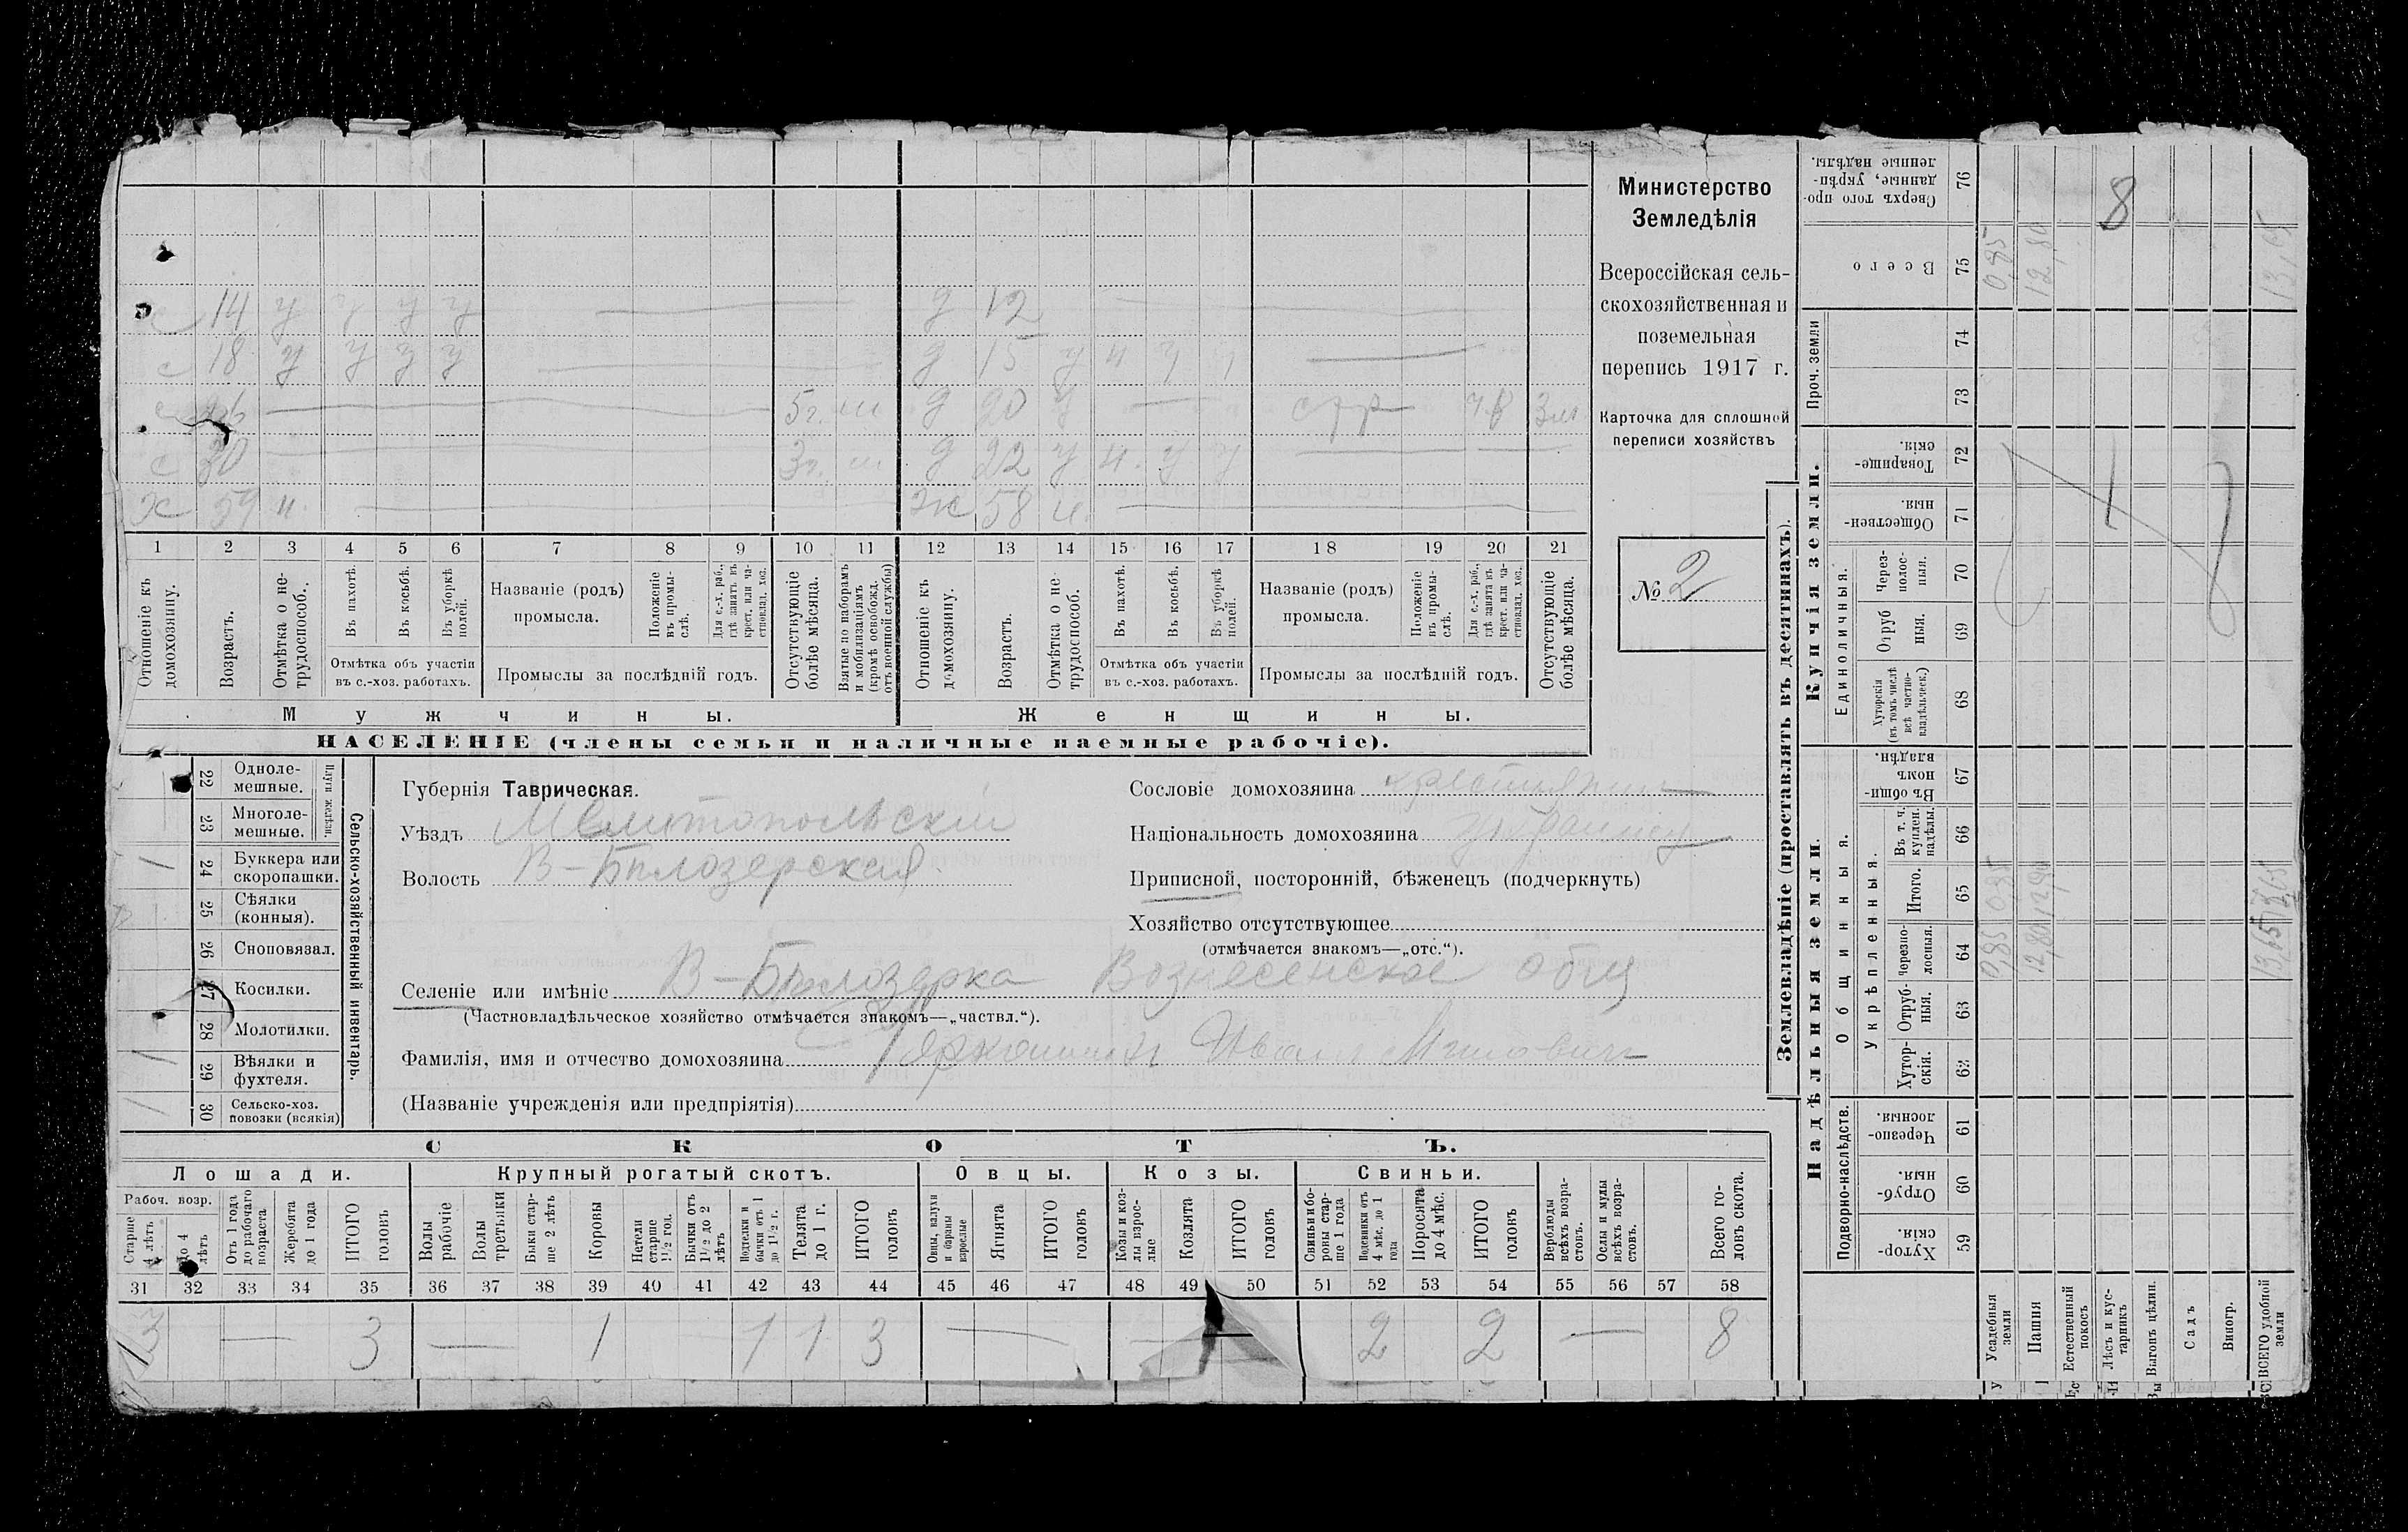 с 14 у у у у д 12
с 18 у у у у д 15 у н у у
с 26 5г. д 20 у 3м
с 30 3г. д 22 у н. у у
х 59 н. ж 58 н.
1 2 3 4 5 6 7 8 9 10 11 12 13 14 15 16 17 18 19 20 21
Отношеніе къ домохозяину.
Возрастъ.
Отмѣтка о нетрудоспособ.
Въ пахотѣ.
Въ косьбѣ.
Въ уборкѣ полей.
Отмѣтка объ участіи
въ с.-хоз. работахъ.
Названіе (родъ)
промысла.
Положеніе въ промыслѣ.
Для с.-х. раб., гдѣ занятъ въ крест. или частновлад. хоз.
Промыслы за послѣдній годъ.
Отсутствующіе болѣе мѣсяца.
Взятые по наборамъ и мобилизаціямъ (кромѣ освобожд. отъ военной службы)
Отношеніе къ домохозяину.
Возрастъ.
Отмѣтка о нетрудоспособ.
Въ пахотѣ.
Въ косьбѣ.
Въ уборкѣ полей.
Отмѣтка объ участіи
въ с.-хоз. работахъ.
Названіе (родъ)
промысла.
Положеніе въ промыслѣ.
Для с.-х. раб., гдѣ занята въ крест. или частновлад. хоз.
Промыслы за послѣдній годъ.
Отсутствующіе болѣе мѣсяца.
Мужчины.
Женщины.
НАСЕЛЕНІЕ (члены семьи и наличные наемные рабочіе).
Министерство
Земледѣлія
Всероссійская сель-
скохозяйственная и
поземельная
перепись 1917 г.
Карточка для сплошной
переписи хозяйствъ
№ 2
22 Одноле-
мешные.
23 Многоле-
мешные.
Плуги желѣзн.
1 24 Буккера или
скоропашки.
25 Сѣялки
(конныя).
26 Сноповязал.
27 Косилки.
28 Молотилки.
1 29 Вѣялки и
фухтеля.
1 30 Сельско-хоз.
повозки (всякія)
Сельско-хозяйственный инвентарь.
Губернія Таврическая.
Уѣздъ Мелитопольскій
Волость В-Бѣлозерская
Сословіе домохозяина крестьянин
Національность домохозяина украинец
Приписной, посторонній, бѣженецъ (подчеркнуть)
Хозяйство отсутствующее
(отмѣчается знакомъ—„отс.“).
Селеніе или имѣніе В-Бѣлозерка Вознесенское общ
(Частновладѣльческое хозяйство отмѣчается знакомъ—„частвл.“).
Фамилія, имя и отчество домохозяина Иван
(Названіе учрежденія или предпріятія)
СКОТЪ.
Лошади. Крупный рогатый скотъ. Овцы. Козы. Свиньи.
Рабоч. возр.
Старше 4 лѣтъ
До 4 лѣтъ
Отъ 1 года до рабочаго возраста
Жеребята до 1 года
ИТОГО головъ
Волы рабочіе
Волы третьяки
Быки старше 2 лѣтъ
Коровы
Нетели старше 1½ год.
Бычки отъ 1½ до 2 лѣтъ
Подтелки и бычки отъ 1 до 1½ г.
Телята до 1 г.
ИТОГО головъ
Овцы, валухи и бараны взрослые
Ягнята
ИТОГО головъ
Козы и козлы взрослые
Козлята
ИТОГО головъ
Свиньи и боровы старше 1 года
Подсвинки отъ 4 мѣс. до 1 года
Поросята до 4 мѣс.
ИТОГО головъ
Верблюды всѣхъ возрастовъ.
Ослы и мулы всѣхъ возрастовъ.
Всего головъ скота.
31 32 33 34 35 36 37 38 39 40 41 42 43 44 45 46 47 48 49 50 51 52 53 54 55 56 57 58
3 — 3 — 1 1 1 3 — — 2 2 — 8
Землевладѣніе (проставлять въ десятинахъ).
Купчія земли.
Надѣльныя земли.
Сверхъ того проданные, укрѣпленные надѣлы. 76
8
Всего 75 0,85 12,80 13,65
Проч. земли 74
73
Товарищескія. 72
Общественныя 71
Единоличныя.
Черезполосныя. 70
Отрубныя. 69
Хуторскія (въ томъ числѣ всѣ частновладѣльческ.) 68
Въ общинномъ владѣн. 67
Общинныя.
Укрѣпленныя.
Въ т. ч. куплен. надѣлы. 66
Итого. 65 0,85 12,80 13,65
Черезполосныя. 64 0,85 12,80 13,65
Отрубныя. 63
Хуторскія. 62
Подворно-наслѣдств.
Черезполосныя. 61
Отрубныя 60
Хуторскія. 59
Усадебныя земли
Пашня
Естественный покосъ
Лѣсъ и кустарникъ
Выгонъ цѣлин.
Садъ
Виногр.
ВСЕГО удобной земли